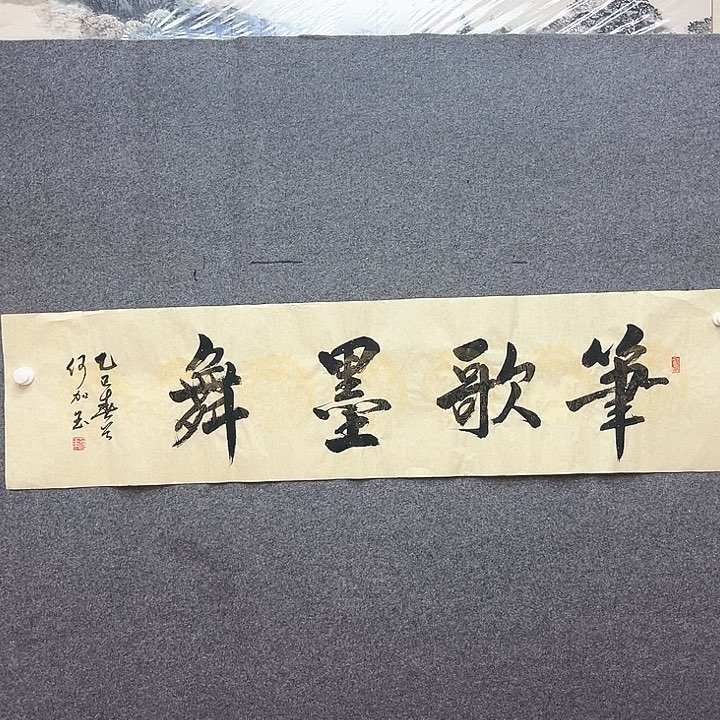 筆歌墨舞
乙巳春月
何加玉